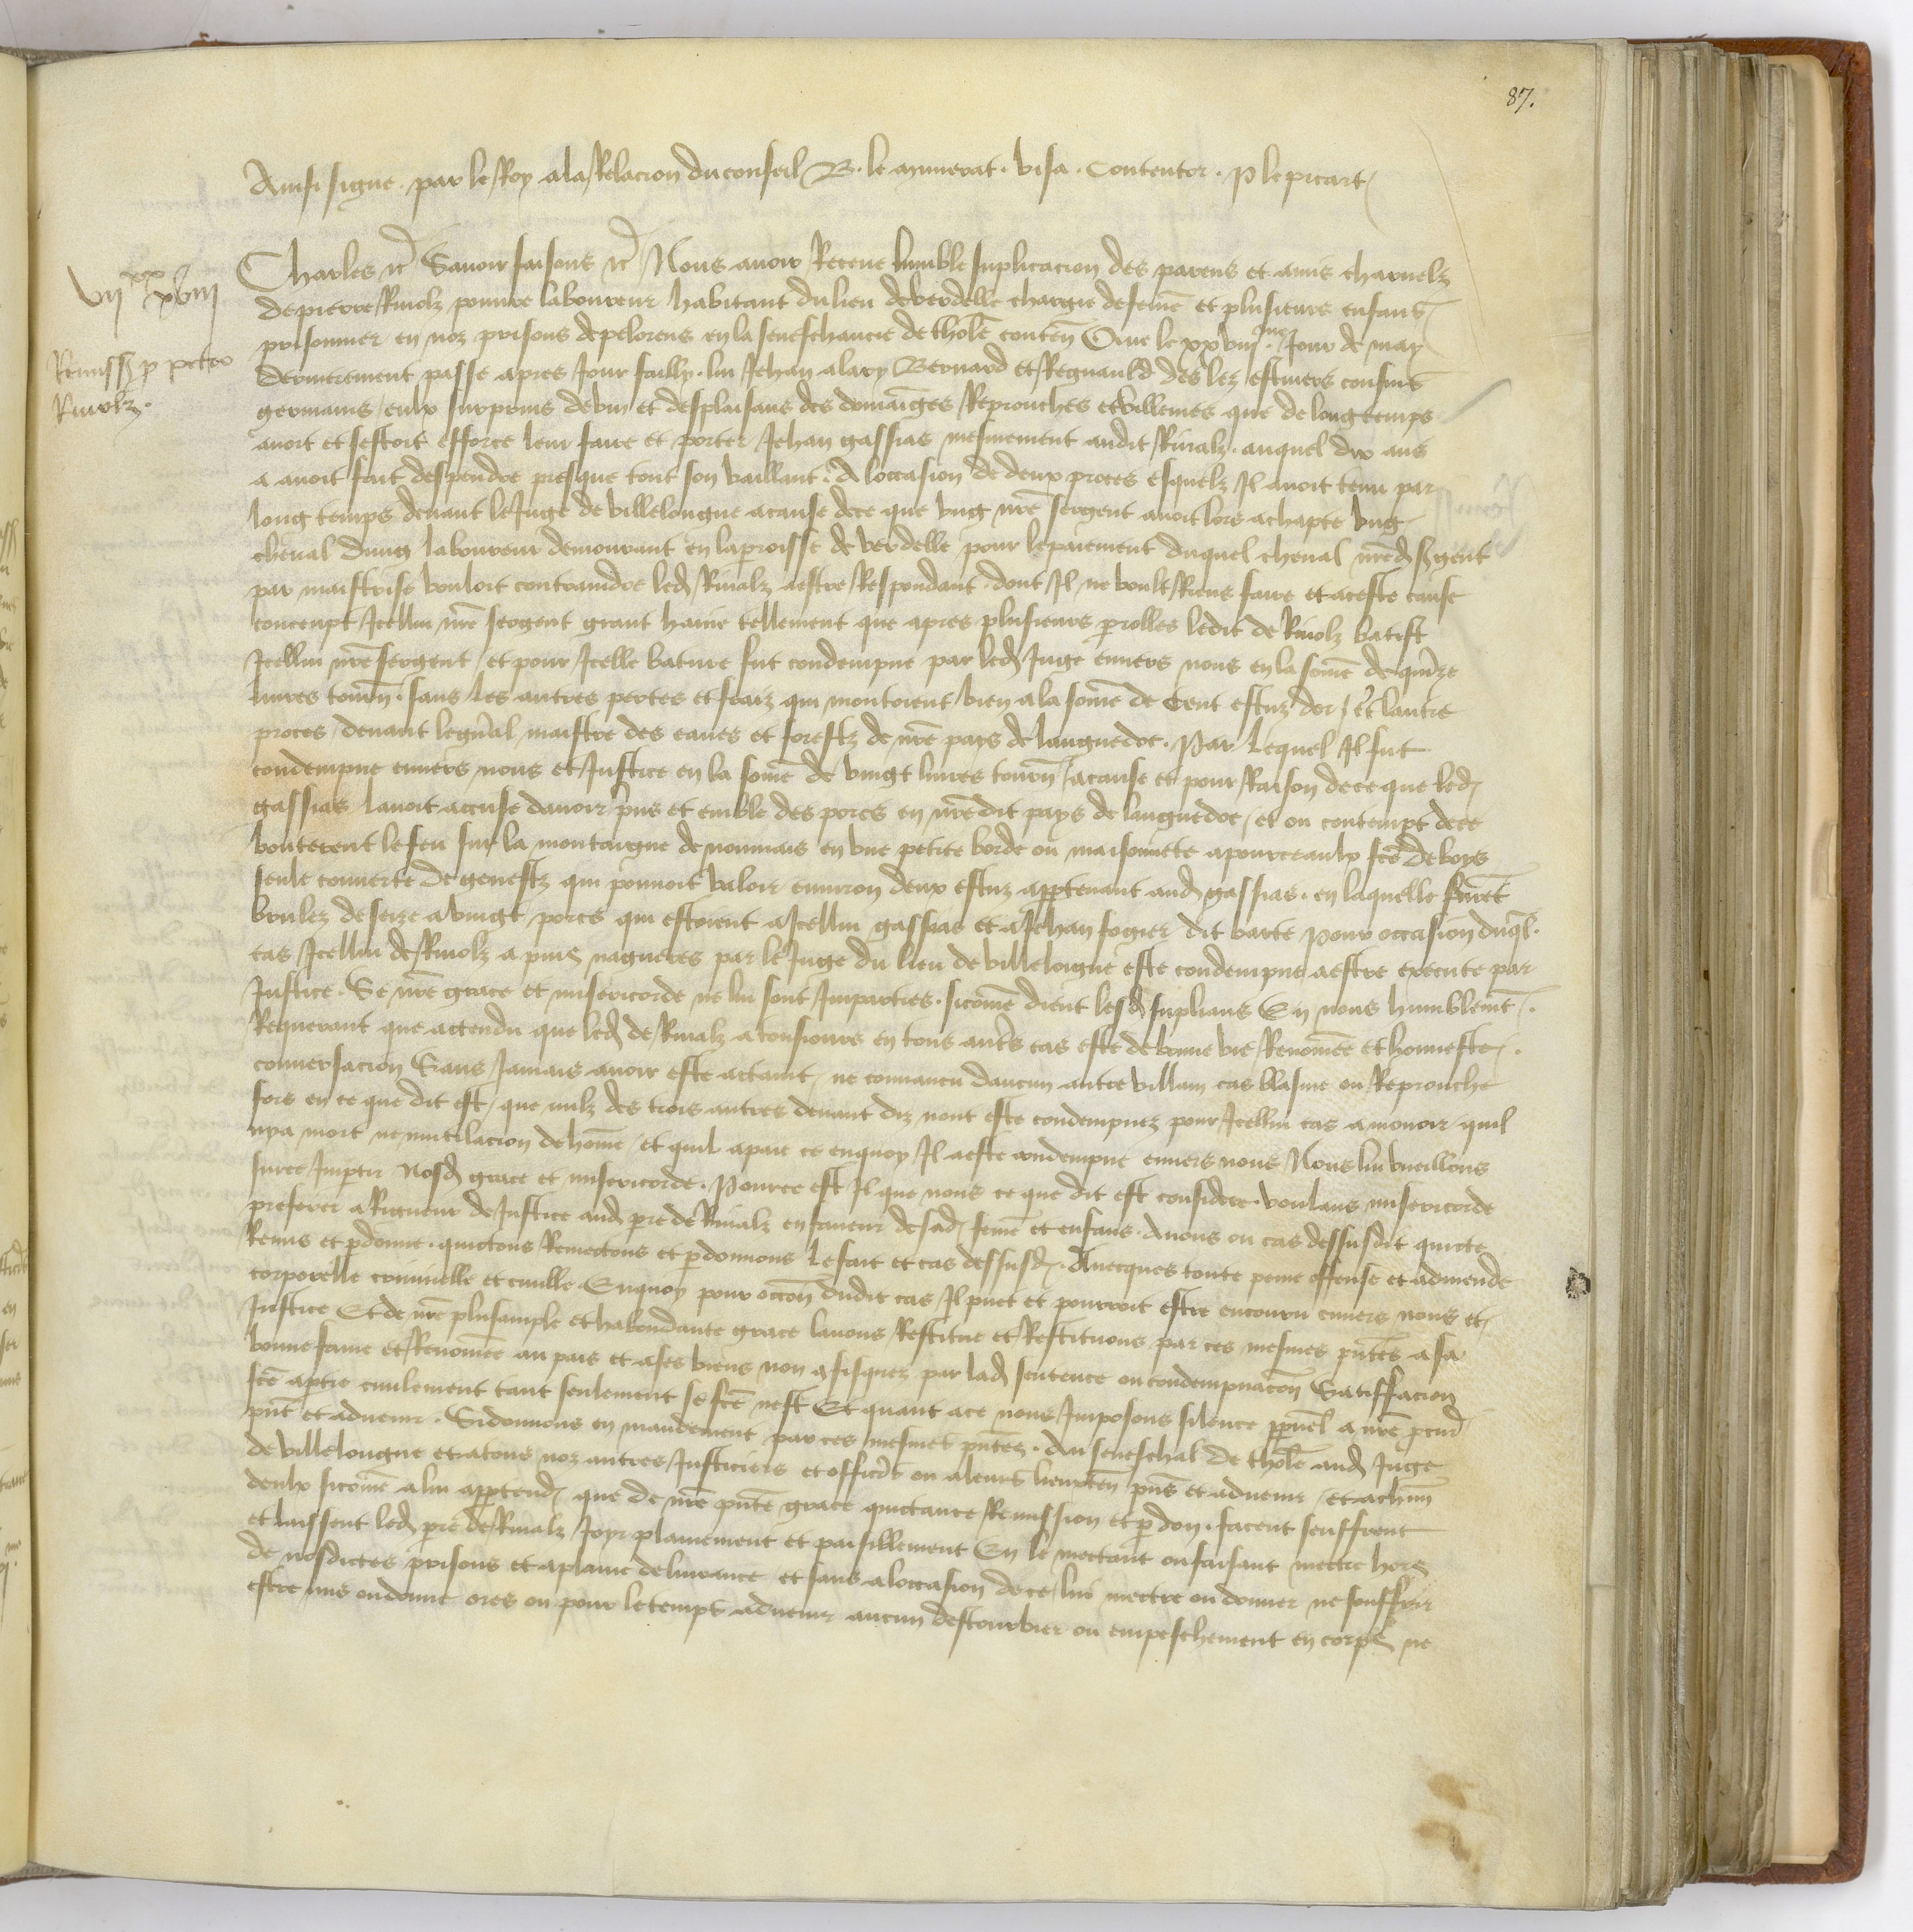 87.
Ainsi signe . par le Roy a la Relacion du conseil B . le munerat . visa . Contentor . P le picart
Charles etc Savoir faisons etc Nous avoir Receue lumble suplicacion des parens et amis charnelz
VII xx XVIII
de pierre Rivalz pouvre laboureur habitant du lieu de verdelle chargie de feme et plusieurs enfans
prisonnier en noz prisons de pelorens en la seneschaucie de tholē contēn Que le xxviii me Jour de may
Remissio p petro
Rivalz .
Derrierement passe apres Jour failly . lui Jehan alary Bernard et Regnauld des lez estiviers cousins
germains / eulx surprins de vin et desplaisans des domaiges Reprouches et villenies que de long temps
avoit et sestoit efforce leur faire et porter Jehan gassias mesmement audit Rivalz . auquel dix ans
a avoit fait despendre presque tout son vaillant . A loccasion de deux proces esquelz Il avoit tenu par
long temps devant le Juge de villelongue a cause de ce que ung nrē sergent avoit lors achapte ung
cheval dung laboureur demourant en la proisse de verdelle pour le paiement duquel cheval nred sergent
par maistrise vouloit contraindre led Rivalz a estre Respondant . dont Il ne voult Riens faire et a ceste cause
conceupt Icellui nrē sergent grant haine tellement que apres plusieurs parolles ledit de Rivolz batist
Icellui nrē sergent / et pour Icelle bature fut condempne par led Juge envers nous en la some de quinze
livres tourn . sans les autres pertes et fraiz qui montoient bien a la some de Cent escuz dor / et lautre
proces / devant le gnāl maistre des eaues et forestz de nrē pays de languedoc . Par lequel Il fut
condempne envers nous et Justice en la some de vingt livres tourn / a cause et pour Raison de ce que led
gassias lavoit accuse davoir prins et emble des porcs en nrēdit pays de languedoc / et ou contempt de ce
bouterent le feu sur la montaigne de nonniais en une petite borde ou maisonnete a pourceaulx fcē de boys
seule couverte de genestz qui pouvoit valoir environ deux escuz appartenant aud gassias . en laquelle furēt
brulez de seize a vingt porcs qui estoient a Icellui gassias et a Jehan fogier dit barte Pour occasion duql .
cas Icellui de Rivolz a puis nagueres par le Juge du lieu de villelongue este condempne a estre execute par
Justice . Se nrē grace et misericorde ne lui sont Imparties . sicome dient lesd suplians En nous humblemt .
Requerant que actendu que led de Rivalz a tousiours en tous autrs cas este de bonne vie Renomee et honneste .
conversacion Sans Jamais avoir este actaint / ne convaincu daucun autre villain cas blasme ou Reprouche
fors en ce que dit est / que nulz des trois autres devant diz nont este condempnez pour Icellui cas a mourir / quil
nya mort ne mutilacion de home / et quil apaie ce en quoy Il a este condempne envers nous Nous lui vueillons
sur ce Impartir Nosd grace et misericorde . Pource est Il que nous ce que dit est considere . voulans misericorde
preferer a Rigueur de Justice aud pre de Rivalz en faveur de sad feme et enfans . Avons ou cas dessusdit quicte
Remis et pdonne . quictons Remectons et pdonnons le fait et cas dessusd . Avecques toute peine offense et admende
corporelle criminelle et civille . En quoy pour occon dudit cas Il puet et pourroit estre encouru envers nous et
Justice Et de nrē plus ample et habondante grace lavons Restitue et Restituons par ces mesmes pntes a sa
bonne fame et Renomee au pais et a ses biens non confisquez par lad sentence ou condempnacon Satiffacion
fcē a ptie civilement tant seulement se fcē nest Et quant a ce nous Imposons silence ppetuel a nrē procur
pnt et advenir . Si donnons en mandement par ces mesmes pntes . Au seneschal de tholē aud Juge
de villelongue et a tous noz autres Justiciers et officrs ou a leurs lieuxten pns et advenir / et a chun
deulx sicome a lui appartend que de nrē pnte grace quictance Remission et pdon . facent seuffrent
et laissent led pre de Rivalz Joyr plainement et paisiblement En le mectant ou faisant mectre hors
de nosdictes prisons et a plaine delivrance et sans a loccasion de ce / lui mectre ou donner ne souffrir
estre mis ou donne ores ou pour le temps advenir aucun destourbier ou empeschement en corps ne